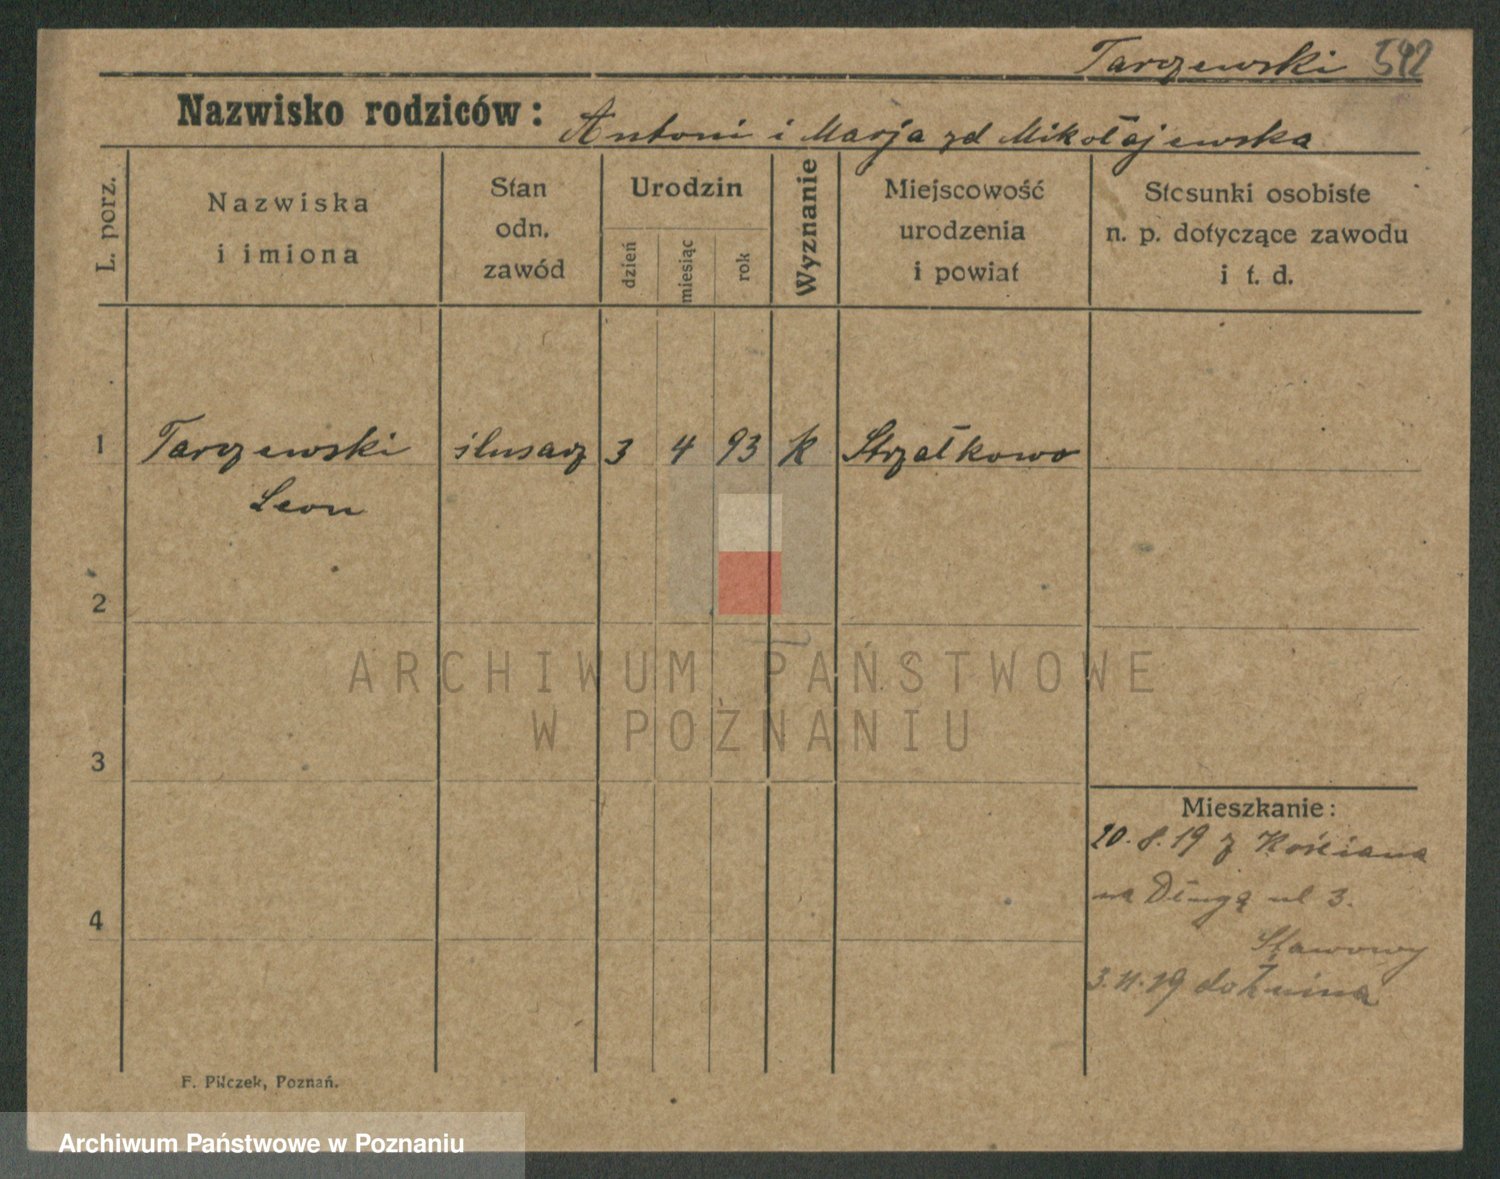 Tarzewski 542
Nazwisko rodziców: Antoni i Marja zd Mikołajewska
L. porz.
Nazwiska
i imiona
Stan
odn.
zawód
Urodzin
dzień
miesiąc
rok
Wyznanie
Miejscowość
urodzenia
i powiat
Stosunki osobiste
n. p. dotyczące zawodu
i t. d.
1 Tarzewski ślusarz 3 4 93 k Strzałkowo
Leon
2
3
4
Mieszkanie:
20.8.19 z Kościana
na Długą ul 3.
Stawowy
3.11.19 do Żnina
F. Pilczek, Poznań.
ARCHIWUM PAŃSTWOWE
W POZNANIU
Archiwum Państwowe w Poznaniu